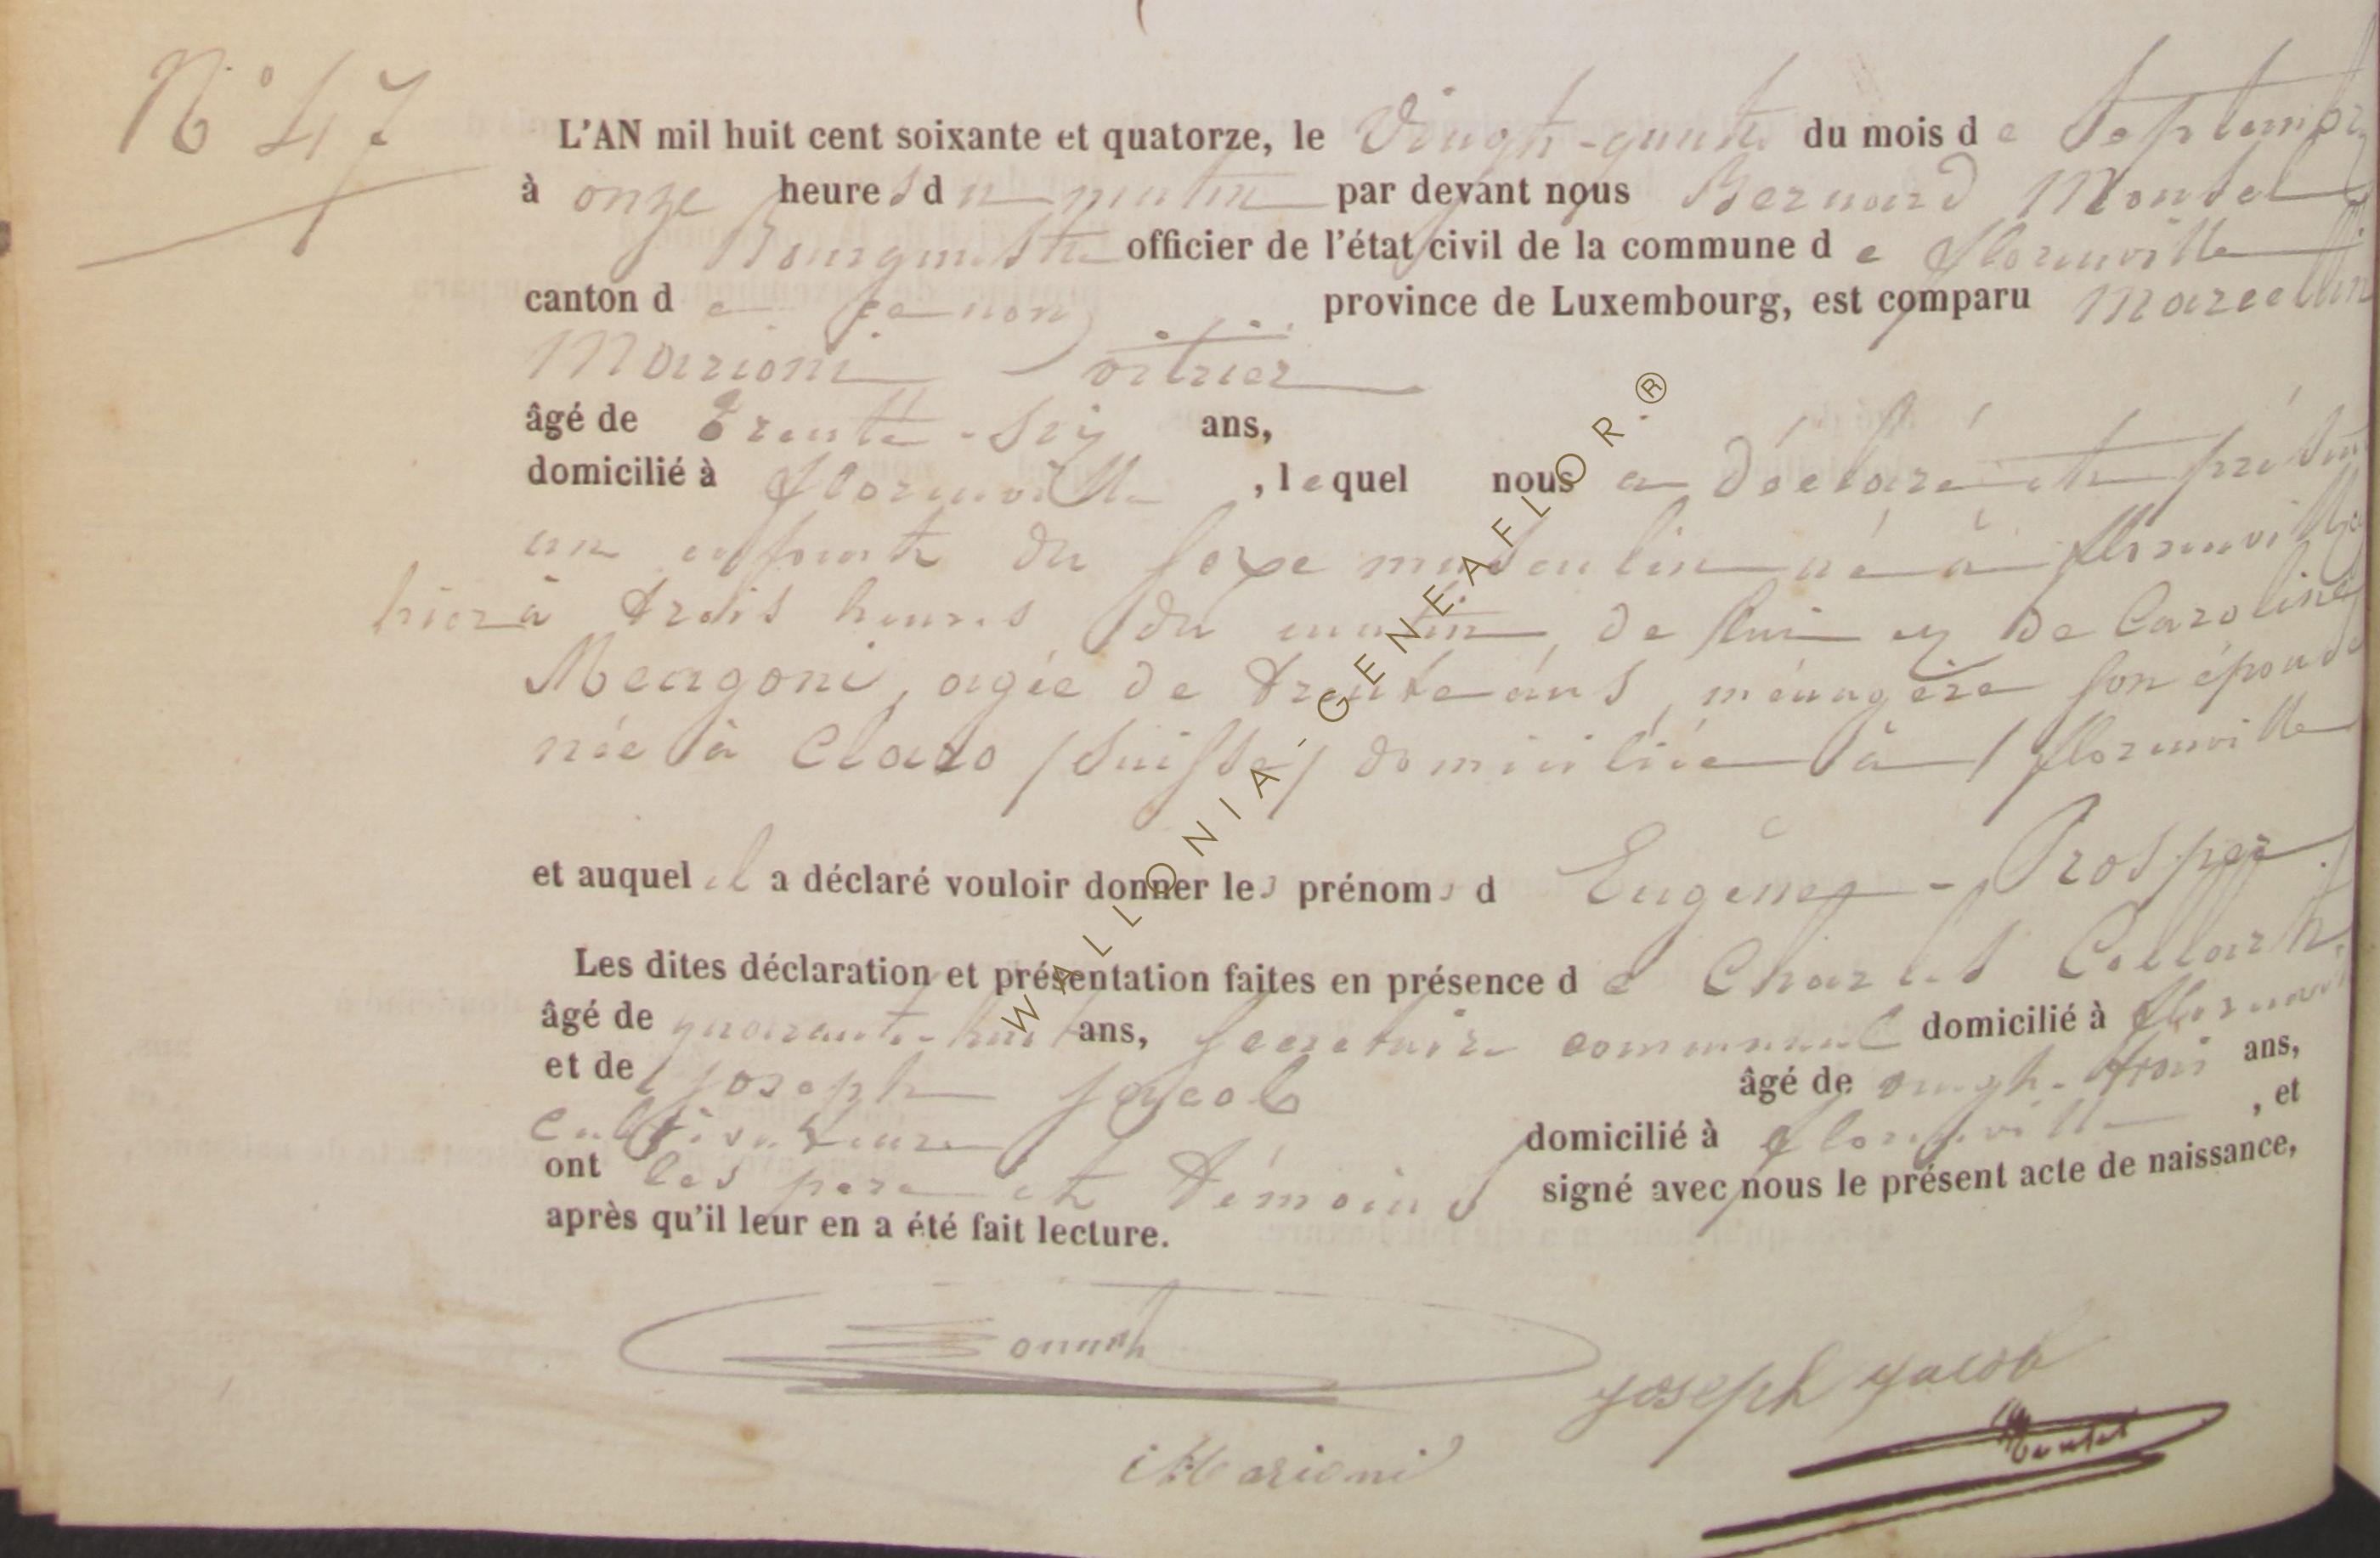 N° 47
L'AN mil huit cent soixante et quatorze, le Vingt-quatre du mois de Septembre
à onze heures du matin par devant nous Bernard Montel
Bourgmestre officier de l'état civil de la commune de florenville
canton de province de Luxembourg, est comparu Marcellin
Marioni vitrier
âgé de Trente-six ans,
domicilié à florenville, lequel nous a déclaré et présenté
un enfant du sexe masculin né à florenville
hier à trois heures du matin, de lui et de Caroline
Mengoni, agée de trente ans, ménagère son épouse
née à Claro (Suisse) domiciliée à florenville
et auquel il a déclaré vouloir donner les prénoms d Eugène-Prosper
Les dites déclaration et présentation faites en présence de Charles Collart
âgé de quarante-huit ans, secretaire communal domicilié à florenville
et de Joseph Jacob âgé de vingt-trois ans,
cultivateur domicilié à florenville, et
ont les pere et témoins signé avec nous le présent acte de naissance,
après qu'il leur en a été fait lecture.
Joseph Jacob
Marioni
Montel
WALLONIA-GENEAFLOR.®